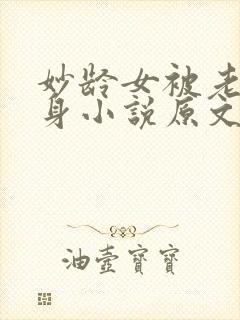 妙龄女被老
身小説原文
油壺寳寳